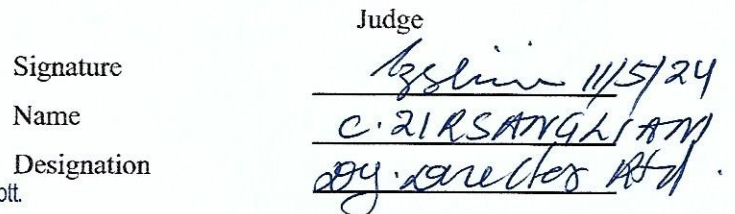 Judge
Signature 11/5/24
Name C. ZIRSANGLIANI
Designation Dy. Director Rtd.
ott.